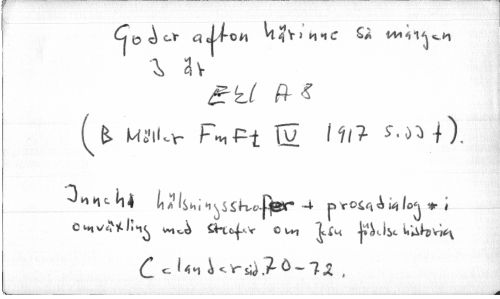 Goder afton härinne så mången
I är
EEl A 8
(B Möller FmFt IV 1917 s.33 f).
Inneh. hälsningsstrofer + prosadialog i
omväxling med strofer om Jesu födelsehistoria
Celander sid. 70-72.